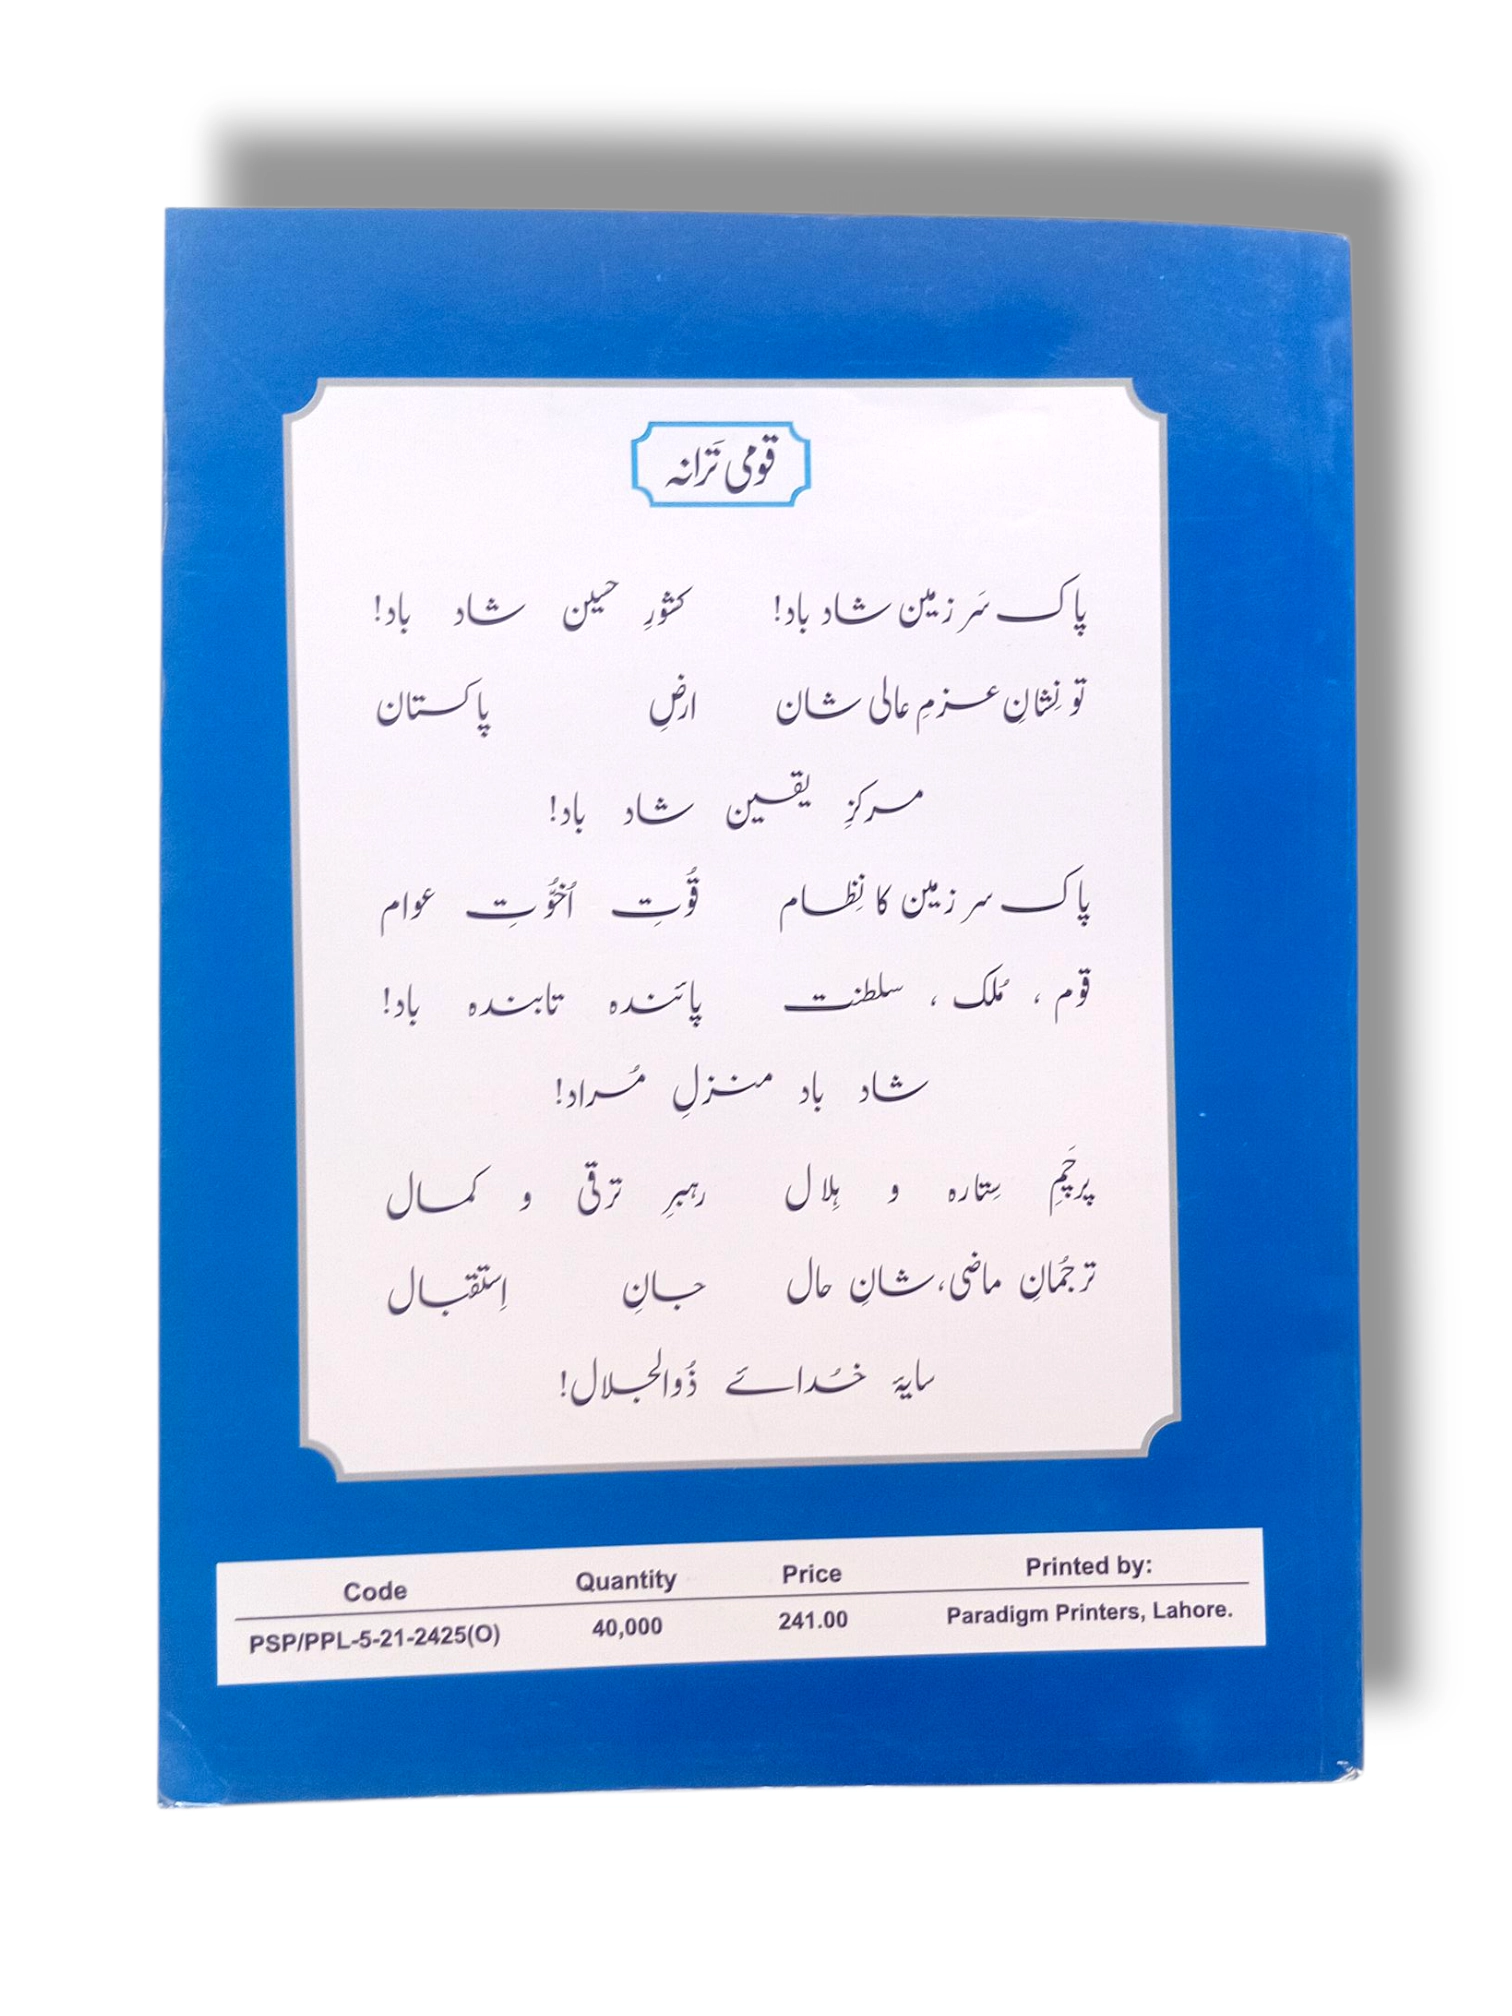 قومی تَرانہ
پاک سَر زمین شاد باد! کشورِ حسین شاد باد!
تو نِشانِ عزمِ عالی شان ارضِ پاکستان
مرکزِ یقین شاد باد!
پاک سر زمین کا نِظام قُوّتِ اُخوُّتِ عوام
قوم ، مُلک ، سلطنت پائندہ تابندہ باد!
شاد باد منزلِ مُراد!
پرچَمِ سِتارہ و ہِلال رہبرِ ترقی و کمال
ترجُمانِ ماضی، شانِ حال جانِ اِستقبال
سایۂ خُدائے ذُوالجلال!
Code Quantity Price Printed by:
PSP/PPL-5-21-2425(O) 40,000 241.00 Paradigm Printers, Lahore.